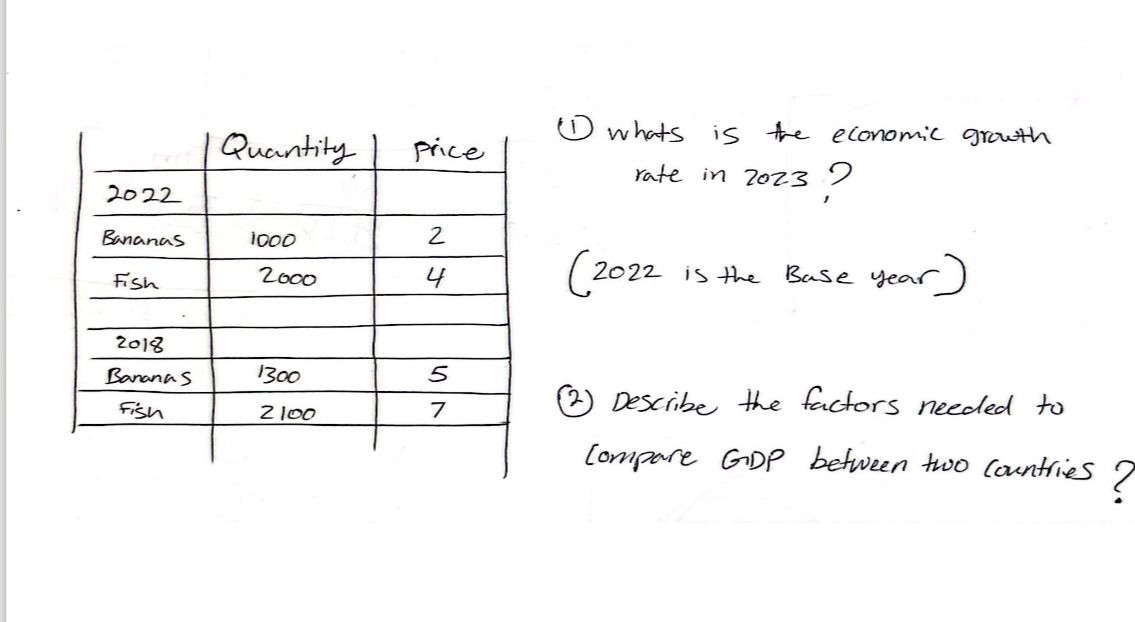 Quantity price
2022
Bananas 1000 2
Fish 2000 4
2018
Bananas 1300 5
Fish 2100 7
① whats is the economic growth
rate in 2023 ?
(2022 is the Base year)
② Describe the factors needed to
compare GDP between two countries ?